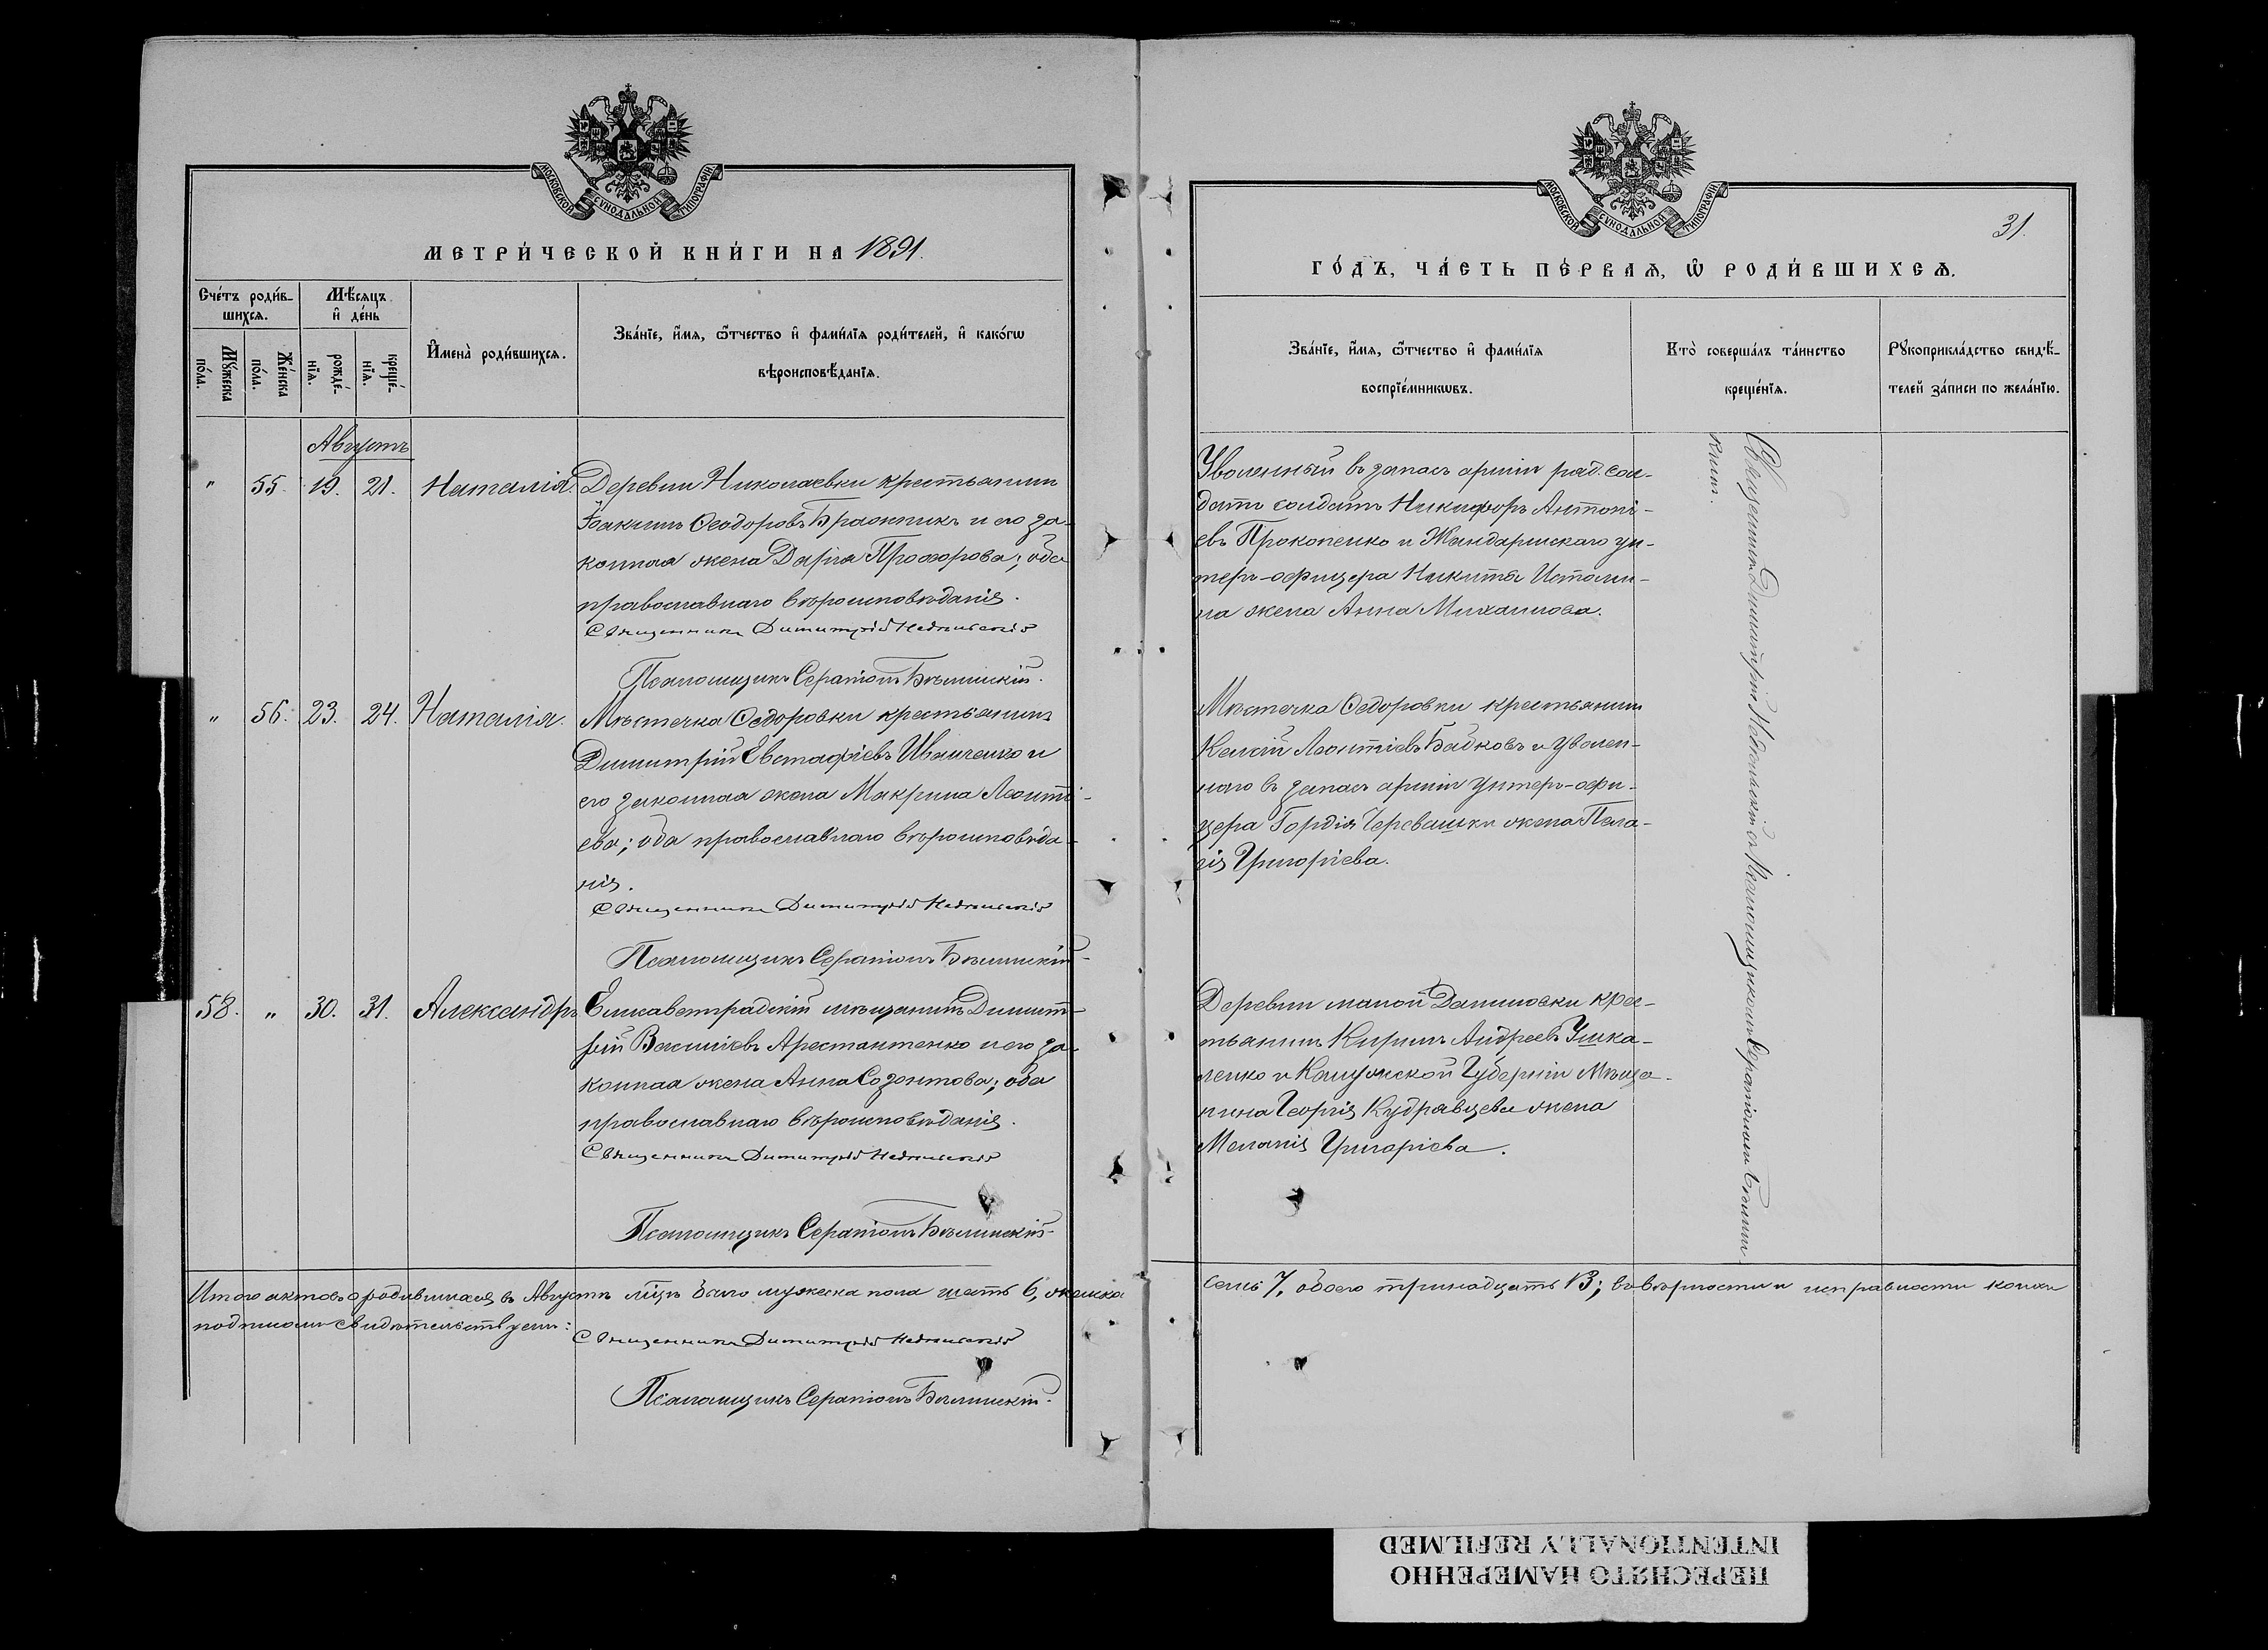 МОСКОВСКОЙ СУНОДАЛЬНОЙ ТИПОГРАФІИ
МЕТРИ́ЧЕСКОЙ КНИ́ГИ НА 1891.
Сче́тъ роди́в-
шихсѧ.
Мѣ́сѧцъ
и҆ де́нь
Мꙋ́жеска
по́ла.
Же́нска
по́ла.
рожде́-
нїѧ.
креще́-
нїѧ.
И҆мена̀ роди́вшихсѧ.
Зва́нїе, и҆́мѧ, ѻ҆́тчество и҆ фами́лїѧ роди́телей, и҆ како́гѡ
вѣроисповѣ́данїѧ.
Августъ
" 55. 19. 21. Наталія. Деревни Николаевки крестьянинъ
Іоакимъ Ѳеодоровъ и его за-
конная жена Дарія Прохорова; оба
православнаго вѣроисповѣданія.
Священникъ Димитрій
Псаломщикъ Серапіонъ Бѣлинскій.
" 56. 23. 24. Наталія. Мѣстечка Ѳедоровки крестьянинъ
Димитрій Евстафіевъ Иванченко и
его законная жена Макрина Леонті-
ева; оба православнаго вѣроисповѣда-
нія.
Священникъ Димитрій
Псаломщикъ Серапіонъ Бѣлинскій
58. " 30. 31. Александръ Елисаветградскій мѣщанинъ Димит-
рій Васильевъ Арестантенко и его за-
конная жена Анна Созонтова; оба
православнаго вѣроисповѣданія.
Священникъ Димитрій
Псаломщикъ Серапіонъ Бѣлинскій
Итого актовъ о родившихся въ Августѣ мѣсяцѣ было мужеска пола шесть 6, женска
подписомъ свидѣтельствуемъ:
Священникъ Димитрій
Псаломщикъ Серапіонъ Бѣлинскій.
МОСКОВСКОЙ СУНОДАЛЬНОЙ ТИПОГРАФІИ
31.
ГО́ДЪ, ЧА́СТЬ ПЕ́РВАѦ, Ѡ҆ РОДИ́ВШИХСѦ.
Зва́нїе, и҆́мѧ, ѻ҆́тчество и҆ фами́лїѧ
воспрїе́мникѡвъ.
Кто̀ соверша́лъ та́инство
креще́нїѧ.
Рꙋкоприкла́дство свидѣ́-
телей за́писи по жела́нїю.
Уволенный въ запасъ арміи ряд. сол-
датъ солдатъ Никифоръ Антоні-
евъ Прокопенко и Жандармскаго ун-
теръ-офицера Никиты Истоми-
на жена Анна Михаилова.
Мѣстечка Ѳедоровки крестьянинъ
Леонтіевъ и уволен-
наго въ запасъ арміи унтеръ-офи-
цера Гордія жена Пела-
гія Григоріева.
Деревни малой Даниловки крес-
тьянинъ Кирилъ Андреевъ Ушка-
ленко и Калужской Губерніи Мѣща-
нина Георгія Кудрявцева жена
Меланія Григоріева.
Священникъ Димитрій съ Псаломщикомъ Серапіономъ Бѣлин-
скимъ.
семь 7, обоего тринадцать 13; въ вѣрности и исправности коихъ
ПЕРЕСНЯТО НАМЕРЕННО
INTENTIONALLY REFILMED